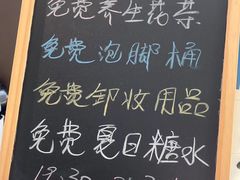 免费养生药茶
免费泡脚桶
免费卸妆用品
免费夏日糖水